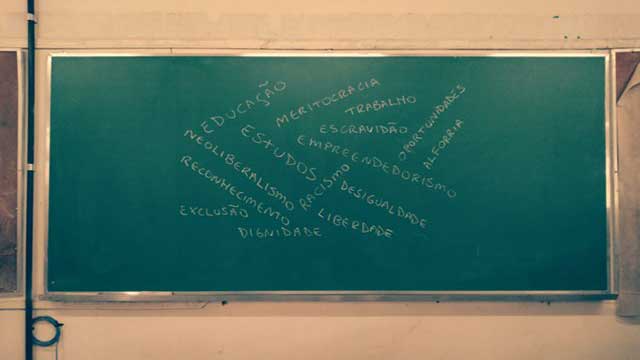 EDUCAÇÃO
MERITOCRACIA
TRABALHO
OPORTUNIDADES
ALFORRIA
ESCRAVIDÃO
ESTUDOS
EMPREENDEDORISMO
NEOLIBERALISMO
RACISMO
RECONHECIMENTO
DESIGUALDADE
EXCLUSÃO
LIBERDADE
DIGNIDADE